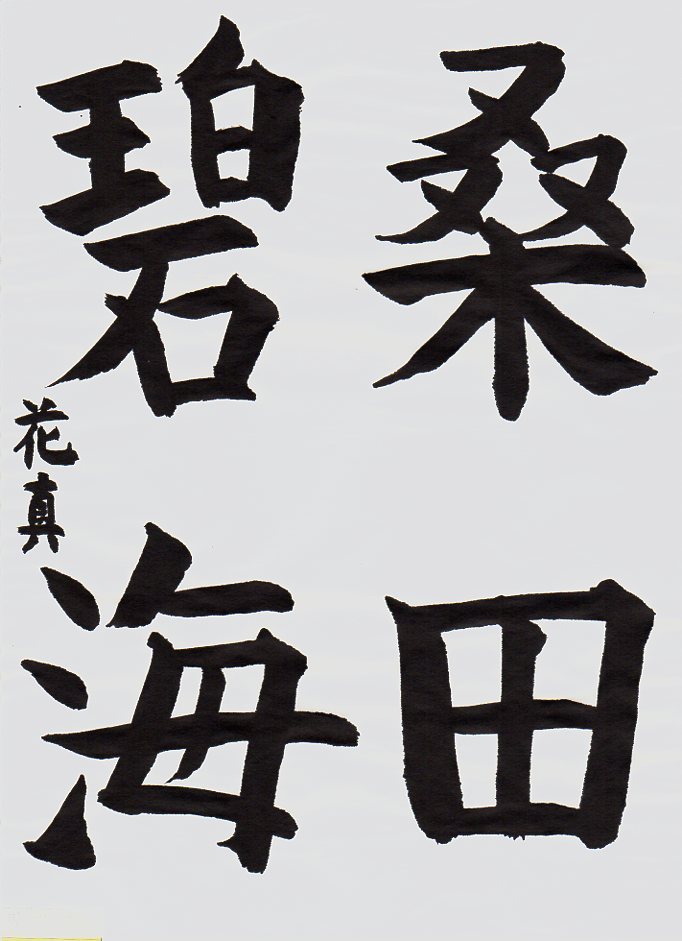 桑田
碧海
花真